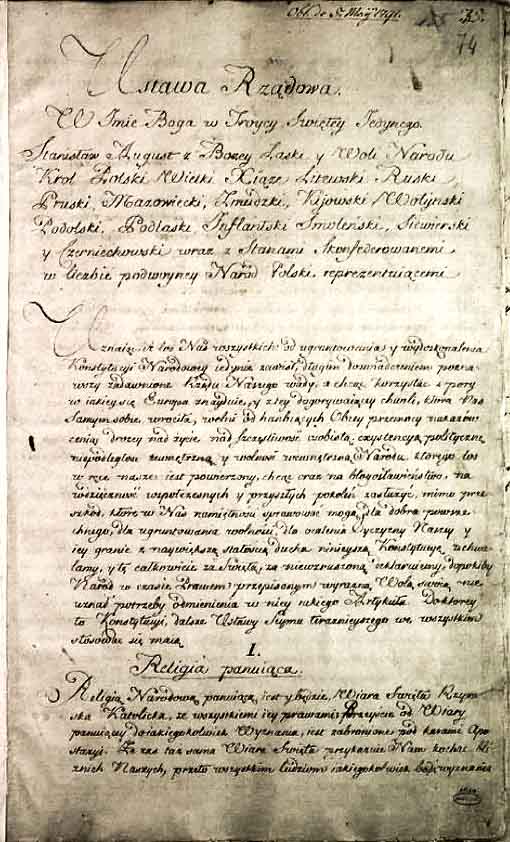 Obl. de 5. Maij 1791.
74
Ustawa Rządowa.
W Imie Boga w Troycy Swiętey Jedynego.
Stanisław August z Bozey Łaski y Woli Narodu
Krol Polski Wielki Xiąze Litewski Ruski
Pruski, Mazowiecki, Zmudzki, Kijowski Wołynski
Podolski, Podlaski Inflantski Smolenski, Siewierski
y Czerniechowski wraz z Stanami Skonfederowanemi
w liczbie podwoyney Naród Polski reprezentuiącemi
Uznaiąc iż los Nas wszystkich od ugruntowania y wydoskonalenia
Konstytucyi Narodowey iedynie zawisł, długim doswiadczeniem pozna-
wszy zadawnione Rządu Naszego wady, a chcąc korzystac z pory
w iakiey się Europa znayduie, y z tey dogorywaiącey chwili, ktora Nas
samym sobie wrociła, wolni od hanbiących Obcey przemocy nakazow
ceniąc drozey nad życie nad szczęśliwość osobistą exystencyą polityczną
niepodległosc zewnętrzną y wolność wewnętrzną Narodu, ktorego los
w ręce nasze iest powierzony, chcąc oraz na błogosławieństwo, na
wdzięczność wspołczesnych y przyszłych pokoleń zasłużyć, mimo prze-
szkod, które w Nas namiętności sprawować mogą, dla dobra powsze-
chnego, dla ugruntowania wolności, dla ocalenia Oyczyzny Naszey y
iey granic z naywiększą stałością ducha ninieyszą Konstytucyę uchwa-
lamy, y tę całkowicie za świętą, za niewzruszoną deklaruiemy, dopokiby
Naród w czasie Prawem przepisanym wyrazną Wolą swoią nie
uznał potrzeby odmienienia w niey iakiego Artykułu. Do ktorey
to Konstytucyi, dalsze Ustawy Seymu teraznieyszego we wszystkim
stosować się maią
I.
Religia panuiąca.
Religią Narodową panuiącą iest y będzie Wiara Swięta Rzym-
ska Katolicka, ze wszystkiemi iey prawami; Przeyście od Wiary
panuiącey do iakiegokolwiek Wyznania, iest zabronione pod karami Apo-
stazyi. Ze zas taż sama Wiara Swięta przykazuie Nam kochać bli-
znich Naszych, przeto wszystkim ludziom iakiegokolwiek bądź wyznania